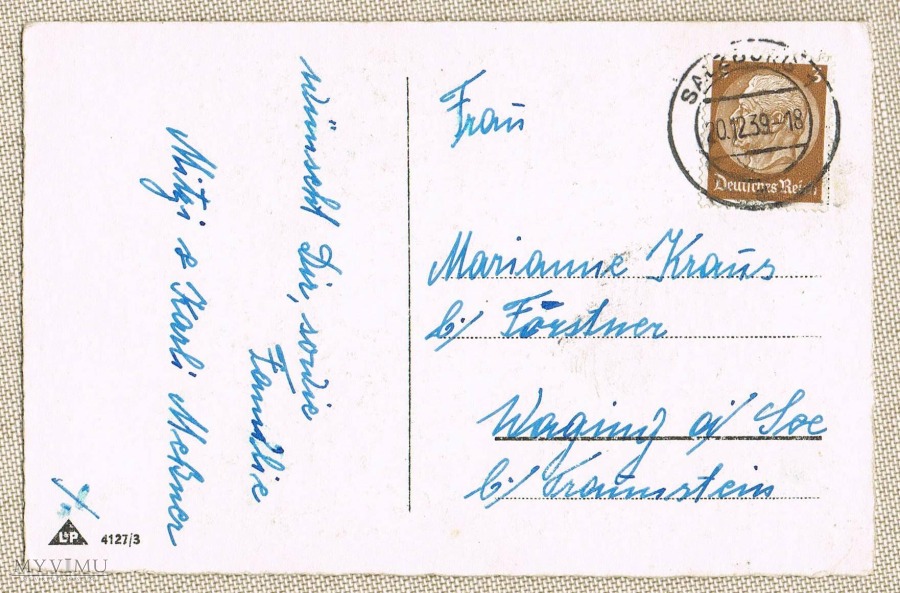 wünscht Dir, sowie
Familie
Mitzi & Karli Meßner
Frau
Marianne Kraus
b/ Förstner
Waging a/ See
b/ Traunstein
SALZBURG
20.12.39-18
3
Deutsches Reich
LP
4127/3
MYVIMU